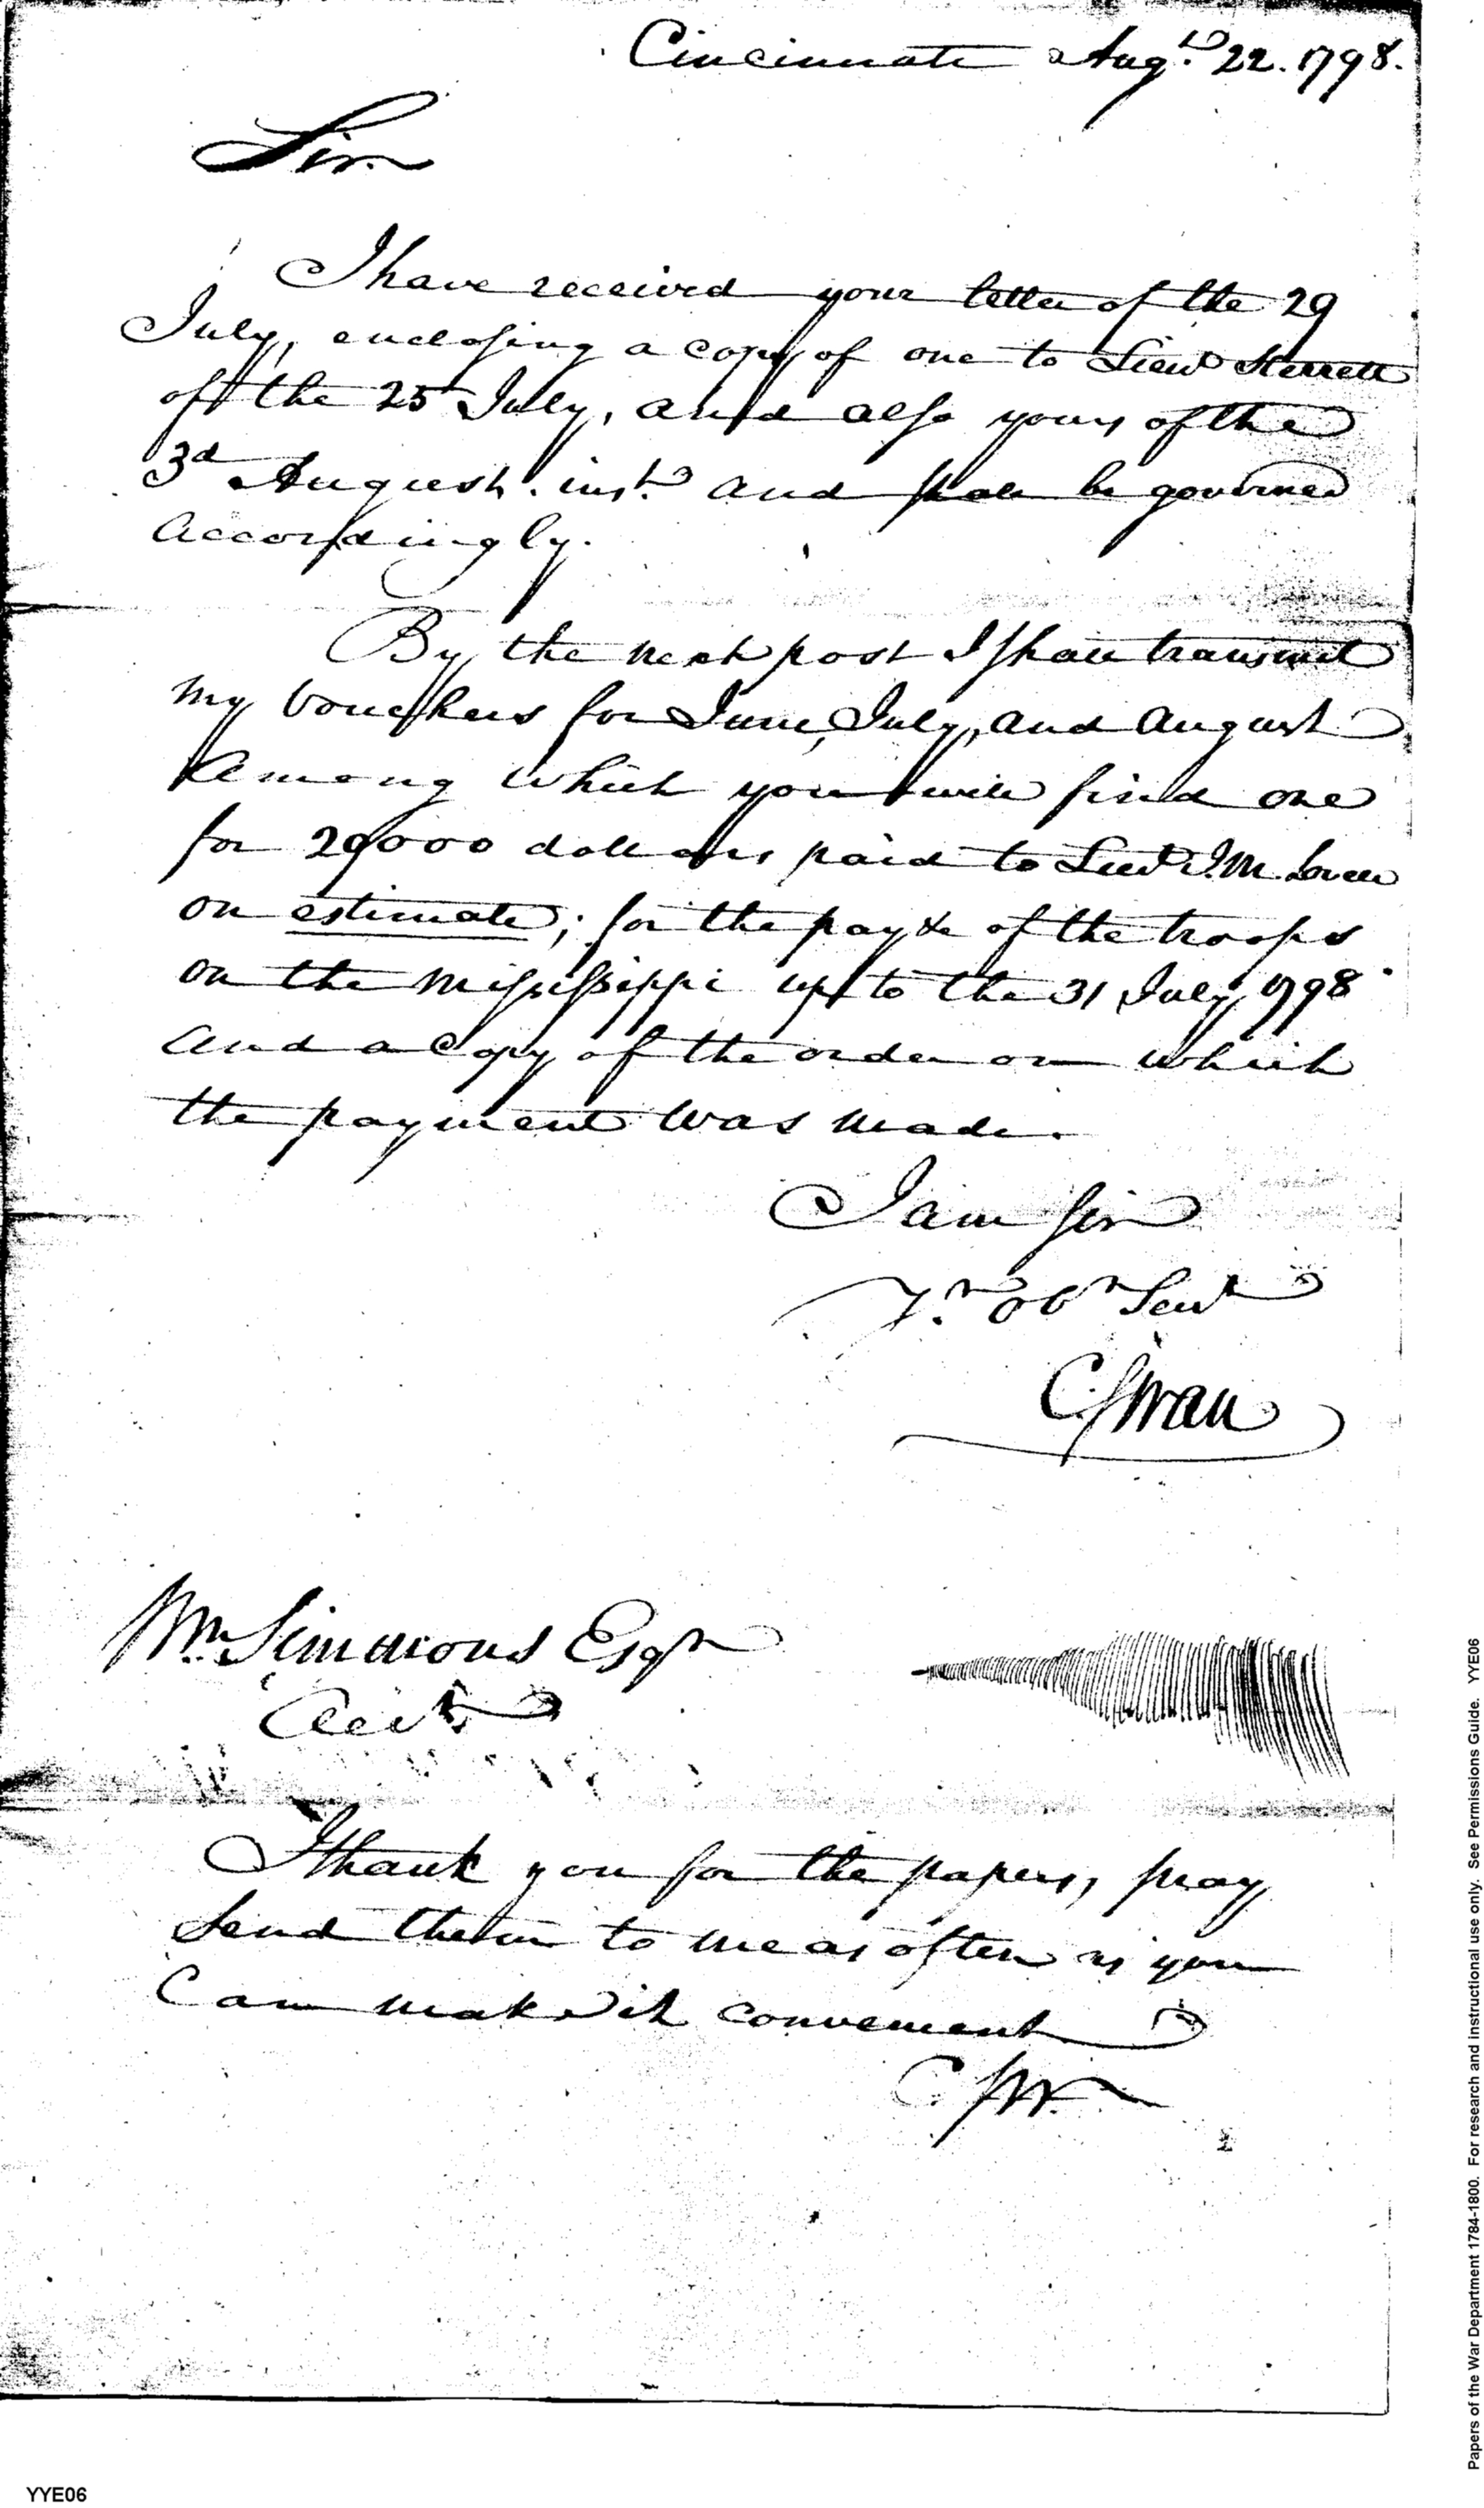 Cincinnati Augt. 22. 1798.
Sir
I have received your letter of the 29
July, enclosing a copy of one to Lieut Sterrett
of the 25 July, and also yours of the
3d August. inst. and shall be governed
Accordingly.
By the next post I shall transmit
my Vouchers for June, July, and August
Among which you will find one
for 29000 dollars paid to Lieut J. M. Lovell
on estimate; for the pay &c of the troops
on the Mississippi up to the 31 July 1798
and a Copy of the order on which
the payment was made.
I am Sir
Yr. Obt Servt
C. Swan
Wm. Simmons Esqr
Acct
I thank you for the papers, pray
Send them to me as often as you
Can make it convenient
C. Sw
YYE06
Papers of the War Department 1784-1800. For research and instructional use only. See Permissions Guide. YYE06